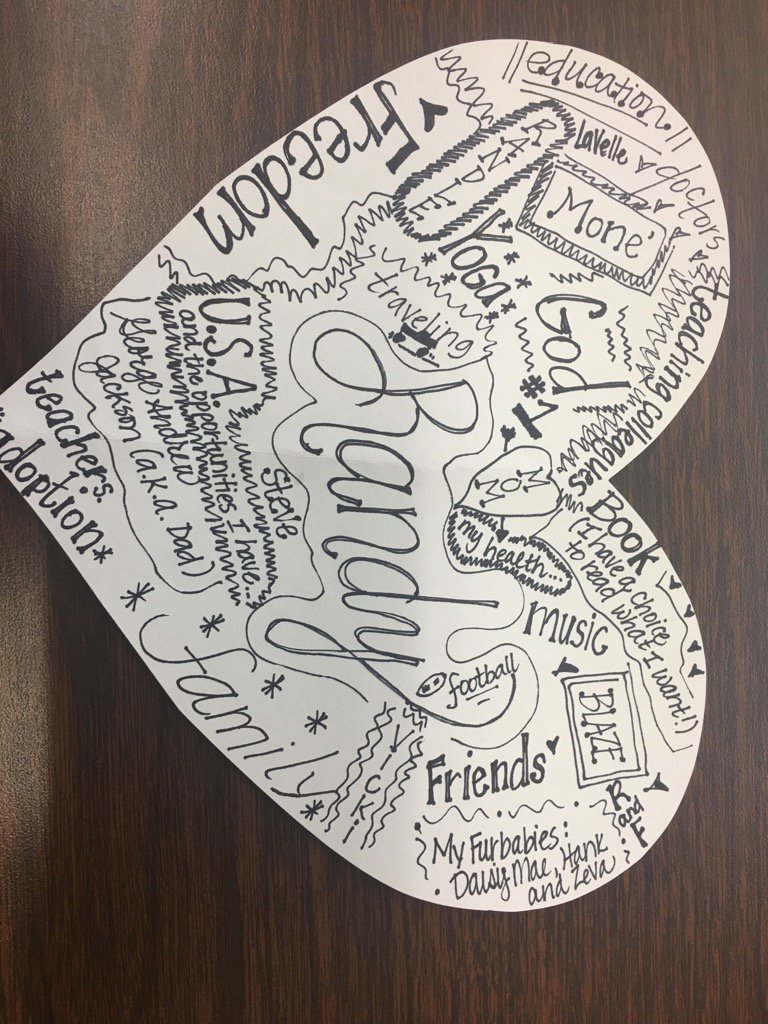 ||education||
LaVelle
doctors
RANDLE
Mone'
Freedom
Yoga
God
#1
teaching colleagues
traveling
U.S.A.
and the opportunities I have...
George Andrew
Jackson (a.k.a. Dad)
Steve
Randy
MOM
my health...
Book
(I have a choice
to read what I want!)
music
teachers.
*adoption*
family
football
BLAZE
Vicki
Friends
R and F
My Furbabies:
Daisy Mae, Hank
and Zeva